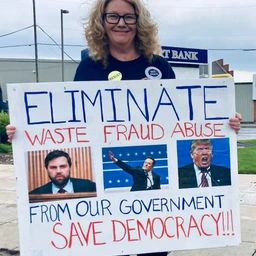 T BANK
ELIMINATE
WASTE FRAUD ABUSE
FROM OUR GOVERNMENT
SAVE DEMOCRACY!!!